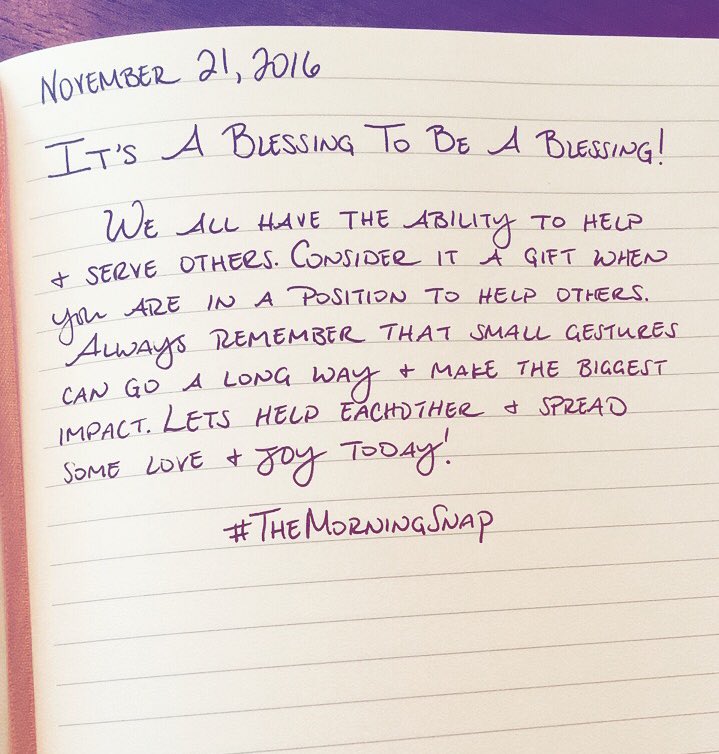 November 21, 2016
It's A Blessing To Be A Blessing!
We all have the ability to help
+ serve others. Consider it a gift when
you are in a position to help others.
Always remember that small gestures
can go a long way + make the biggest
impact. Lets help eachother + spread
some love + joy today!
#TheMorningSnap